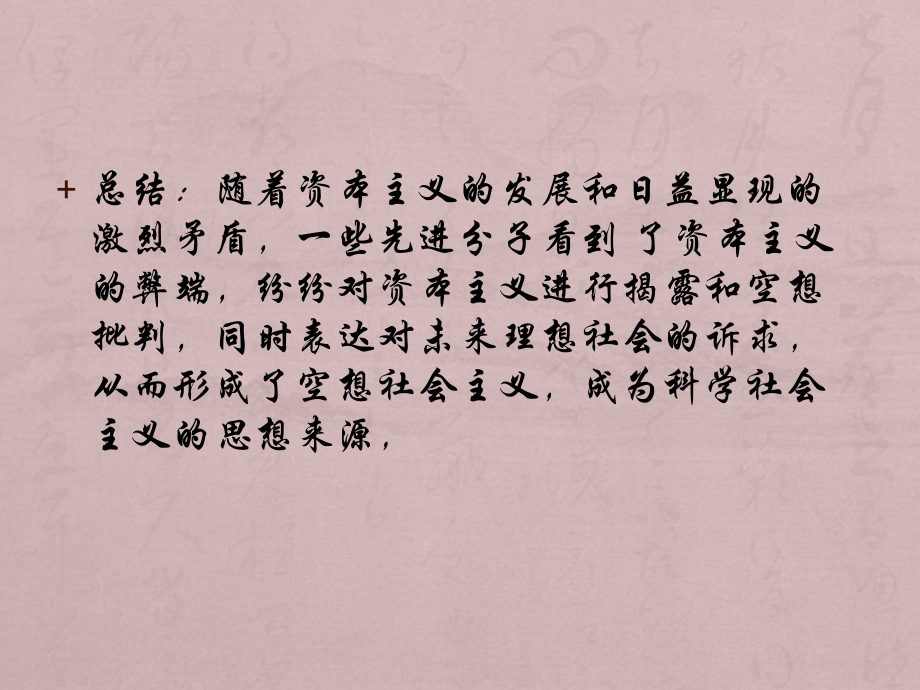 + 总结：随着资本主义的发展和日益显现的
激烈矛盾，一些先进分子看到了资本主义
的弊端，纷纷对资本主义进行揭露和空想
批判，同时表达对未来理想社会的诉求，
从而形成了空想社会主义，成为科学社会
主义的思想来源，